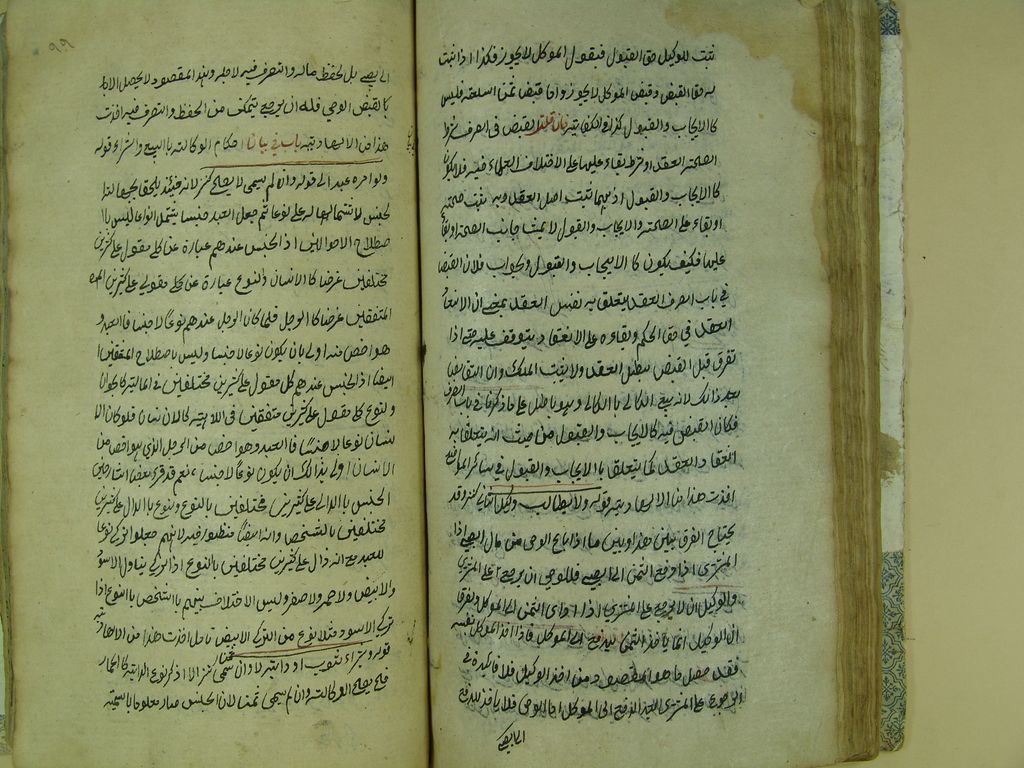 ثبت للوكيل حق القبول فبقبول الموكل لا يجوز فكذا اذا ثبت
له حق القبض وقبض الموكل لا يجوز واما قبض ثمن السلعة فليس
كالايجاب والقبول كذا في الكفاية فان قلت القبض في الصرف شرط
صحة العقد او شرط بقاء عليها على الاختلاف العلماء فيه فلا يكون
كالايجاب والقبول اذ بهما تثبت اصل العقد وبه تثبت صحته
او بقاء على الصحة والايجاب والقبول لا يثبت جانب الصحة او بقاء
عليها فكيف يكون كالايجاب والقبول والجواب فلان القبض
في باب الصرف العقد يتعلق به نفس العقد بمعنى ان الانعقاد
العقد في حق الحكم وبقاءه على الانعقاد يتوقف عليه حتى اذا
تفرق قبل القبض يبطل العقد ولا يثبت الملك وان التقابضا
بعد ذلك لانه بيع الكالي بالكالي وهو باطل على ما ذكرنا في باب الصرف
فكان القبض فيه كالايجاب والقبول من حيث انه يتعلق به
انعقاد العقد كما يتعلق بالايجاب والقبول في سائر المواضع
افدت هذا من الابعادية قوله ولا يطالب وكيل
يحتاج الفرق بين هذا وبين ما اذا باع الوصي من مال الصبي اذا
المشتري اذا دفع الثمن الى الصبي فللوصي ان يرجع على المشتري
والوكيل ان لا يرجع على المشتري اذا ادى الثمن الى الموكل والفرق
ان الوكيل انما ياخذ الثمن ليدفع الى الموكل فاذا اخذ الموكل نفسه
فقد حصل ما هو المقصود ومن اخذ الوكيل فلا فائدة في
الرجوع على المشتري ليعيد الدفع الى الموكل اما الوصي فلا ياخذ ليدفع
الى الصبي
٩٩
الى الصبي بل لحفظ ماله والتصرف فيه لاجله وهذا المقصود لا يحصل الا
بالقبض الوصي فله ان يرجع ليتمكن من الحفظ والتصرف فيه افدت
هذا من الابعادية باب في بيان احكام الوكالة بالبيع والشراء قوله
ولو امره عبد الى قوله وان لم يسمى لا يصلح لانه فحينئذ يلحق بجهالة
الجنس لاشتمالها له على انواعا ثم جعل العبد جنسا يشتمل انواعا ليس با
صطلاح الاصوليين اذ الجنس عندهم عبارة عن كلي مقول على كثيرين
مختلفين غرضا كالانسان والنوع عبارة عن كلي مقول على كثيرين
المتفقين غرضا كالرجل فلما كان الرجل عندهم نوعا لا جنسا فالعبد و
هو اخص منه اولى بان يكون نوعا لا جنسا وليس باصطلاح المنطقيين
ايضا اذ الجنس عندهم كل مقول على كثيرين مختلفين في الماهية كالحيوان
والنوع كلي مقول على كثيرين متفقين في الماهية كالانسان فلو كان الا
نسان نوعا لا جنسا فالعبد وهو اخص من الرجل الذي هو اخص من
الانسان اولى بذلك ان يكون نوعا لا جنسا نعم قد فرق بعض الشارحين
الجنس بالدال على كثيرين مختلفين بالنوع والنوع بالدال على كثيرين
مختلفين بالشخص وانه ايضا منظور فيه لانهم جعلوا التركي نوعا
للعبد مع انه دال على كثيرين مختلفين بالنوع اذ التركي يتناول الاسود
والابيض والاحمر والاصفر وليس الاختلاف بينهم بالشخص بل بالنوع اذ ا
لتركي الاسود مثلا نوع من التركي الابيض تامل افدت هذا من الابعادية
قوله وشراء ثوب او دابة لا وان سمى ثمنا الا اذا ذكر نوع الدابة كالحمار
فح يصح الوكالة وان لم يسمى ثمنا لان الجنس صار معلوما بالتسمية